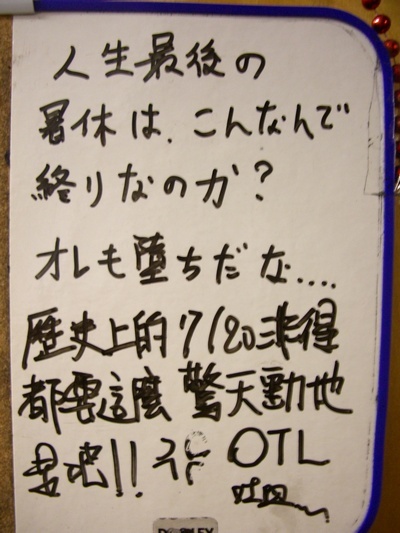 人生最後の
暑休は、こんなんで
終りなのか?
オレも堕ちだな....
歴史上的7/20非得
都要這麼驚天動地
是吧!! OTL
吐血~